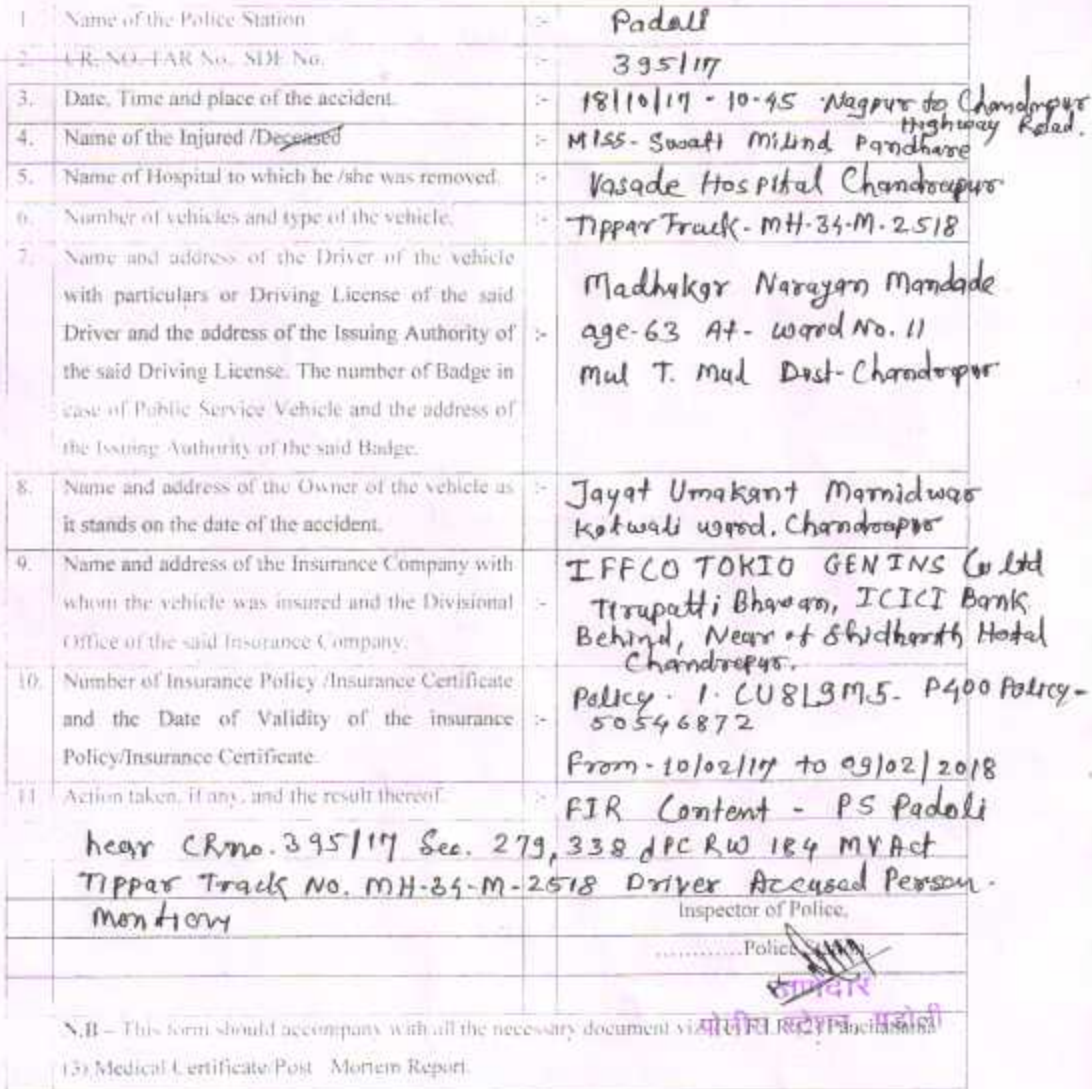 1. Name of the Police Station :- Padoli
2. CR. NO. FAR No. SDE No. :- 395/17
3. Date, Time and place of the accident. :- 18/10/17 - 10-45 Nagpur to Chandrapur Highway Road.
4. Name of the Injured /Deceased :- MISS- Swati Milind Pandhare
5. Name of Hospital to which he /she was removed. :- Vasade Hospital Chandrapur
6. Number of vehicles and type of the vehicle. :- Tippar Track - MH-34-M-2518
7. Name and address of the Driver of the vehicle
with particulars or Driving License of the said
Driver and the address of the Issuing Authority of :-
the said Driving License. The number of Badge in
case of Public Service Vehicle and the address of
the Issuing Authority of the said Badge.
Madhukar Narayan Mandade
age-63 At- ward No. 11
mul T. Mul Dist-Chandrapur
8. Name and address of the Owner of the vehicle as :-
it stands on the date of the accident.
Jayat Umakant Mamidwar
Kotwali ward. Chandrapur
9. Name and address of the Insurance Company with
whom the vehicle was insured and the Divisional :-
Office of the said Insurance Company.
IFFCO TOKIO GEN INS Co Ltd
Tirupatti Bhawan, ICICI Bank
Behind, Near of Shidharth Hotal
Chandrapur.
10. Number of Insurance Policy /Insurance Certificate
and the Date of Validity of the insurance :-
Policy/Insurance Certificate.
Policy - 1. CU8L9M5- P400 Policy-
50546872
From - 10/02/17 to 09/02/2018
11 Action taken, if any, and the result thereof. :- FIR Content - PS Padoli
hear CRno. 395/17 Sec. 279, 338 IPC RW 184 MV Act
Tippar Track No. MH-34-M-2518 Driver Accused Person.
Inspector of Police,
............Police
ठाणेदार
पोलीस स्टेशन पडोली
N.B – This form should accompany with all the necessary document viz
(3) Medical Certificate/Post Mortem Report.